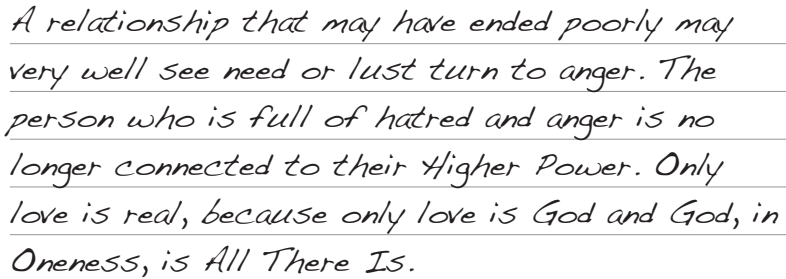 A relationship that may have ended poorly may
very well see need or lust turn to anger. The
person who is full of hatred and anger is no
longer connected to their Higher Power. Only
love is real, because only love is God and God, in
Oneness, is All There Is.